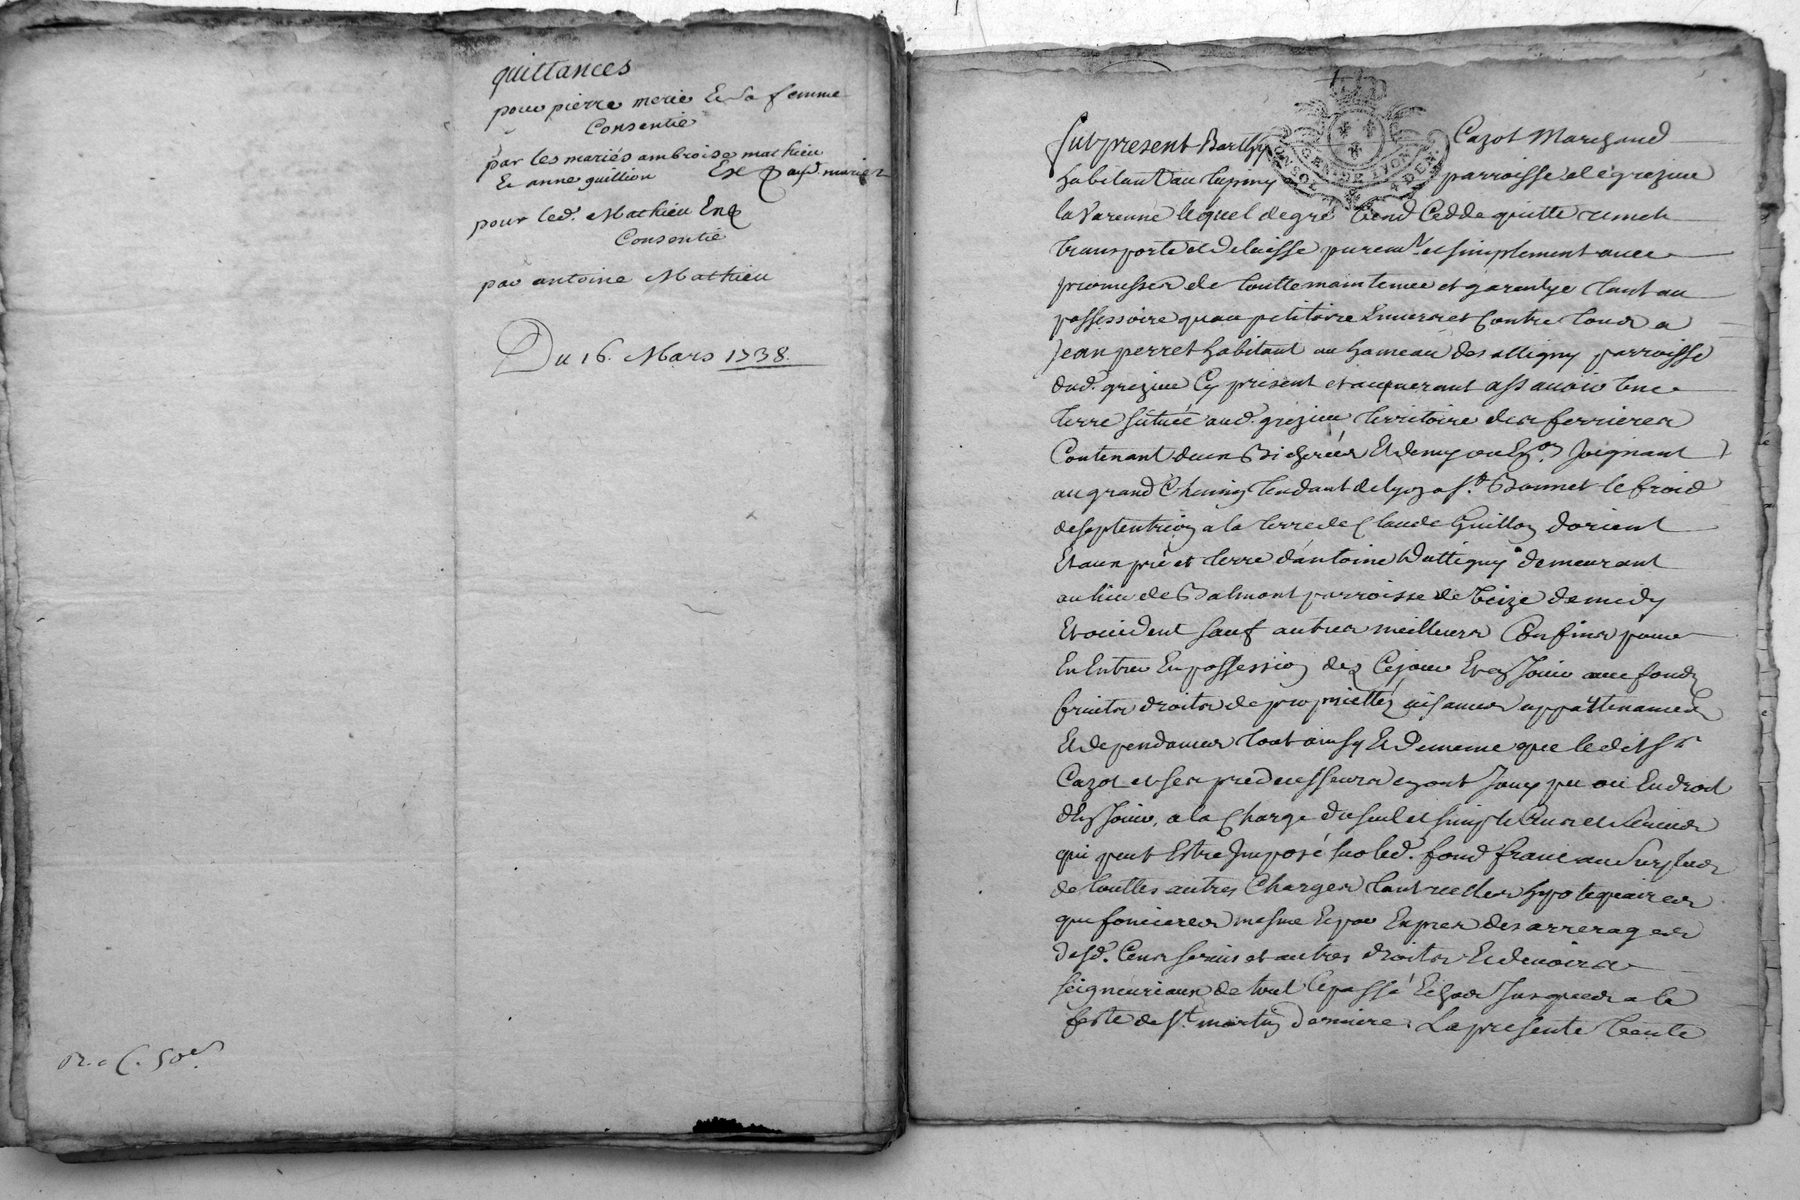 quittances
pour pierre merie & sa femme
Consentie
par les mariés ambroise mathieu
& anne guillion
pour led. Mathieu
Consentie
par antoine Mathieu
Du 16. Mars 1738.
Fut present Barthy Cazot Marchand
habitant au parroisse de grezieu
la Varenne lequel de gré vend cedde quitte remet
transporte et delaisse purem.t et simplement avec
promesses de toutte maintenue et garentye tant au
possessoire quau petitoire Envers et Contre tous a
Jean perret habitant au hameau des attigny parroisse
dud. grezieu Cy present et acquerant assavoir une
terre située aud. grezieu territoire des ferrieres
Contenant deux Bicherées Et demy ou En.on Joignant
au grand Chemin tendant de lyon a S.t Bonnet le froid
de septentrion a la terre de Claude Guillon dorient
Et aux pré et terre dantoine Dattigny demeurant
au lieu de Balmont parroisse de demidy
Et occident sauf autres meilleurs Confins pour
En Entrer En possession des Cejour Et En Jouir avec fonds
fruits droits de proprietté aisances appartenances
Et dependances tout ainsy Et Dememe que le dit Sr
Cazot et ses predecesseurs en ont Jouy pu ou Eu droit
d'En Jouir, a la Charge du seul et simple Cens et servis
qui peut Estre Imposé sur led. fond franc au Surplus
de touttes autres Charges tant reelles hypotequaires
que foncieres mesme Et par Exprès des arrerages
desd. Cens servis et autres droits Et devoirs
seigneuriaux de tout le passé Echus Jusques a la
feste de St. martin derniere. La presente vente